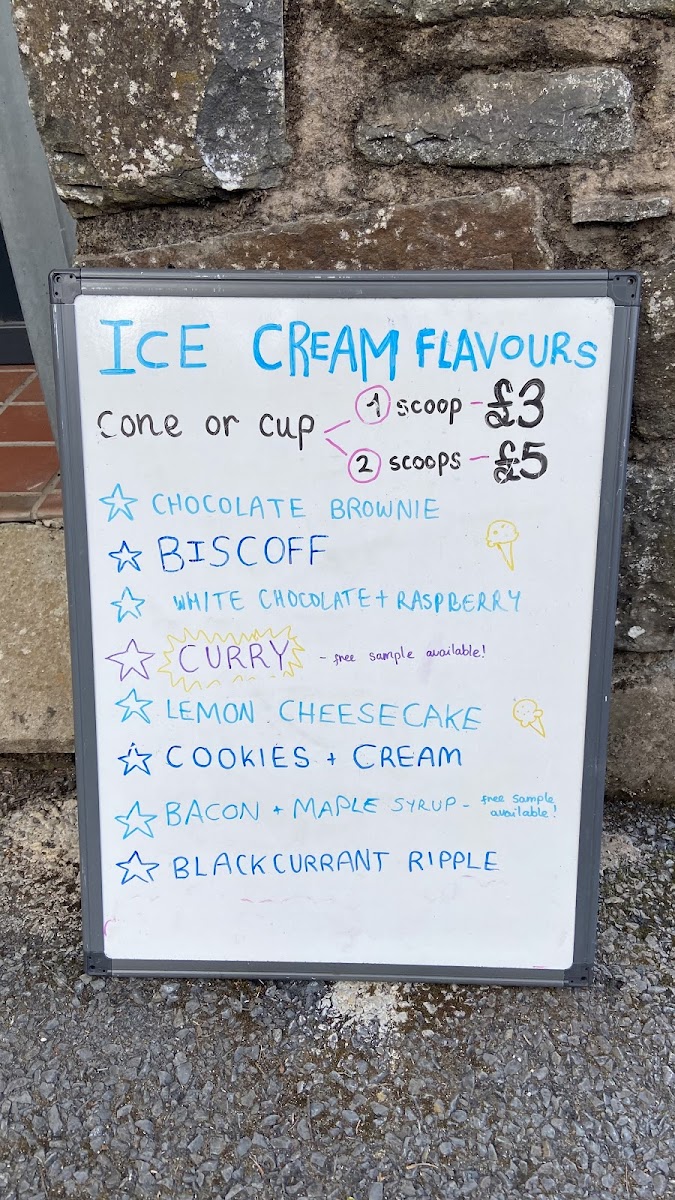 ICE CREAM FLAVOURS
cone or cup
1 scoop - £3
2 scoops - £5
CHOCOLATE BROWNIE
BISCOFF
WHITE CHOCOLATE + RASPBERRY
CURRY - free sample available!
LEMON CHEESECAKE
COOKIES + CREAM
BACON + MAPLE SYRUP - free sample
available!
BLACKCURRANT RIPPLE